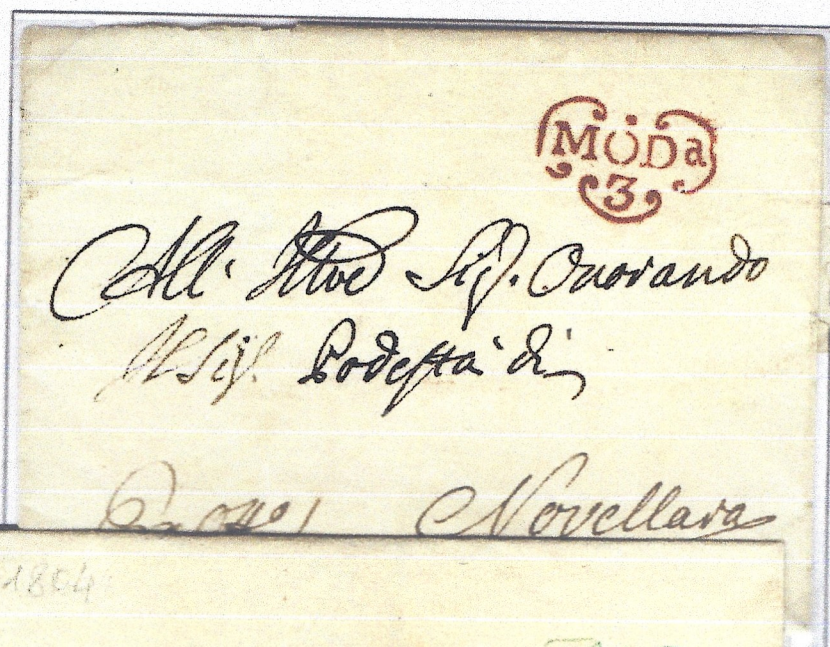 MODa
3
All' Illre Sig. Onorando
Il Sig. Podestà di
Novellara
1804